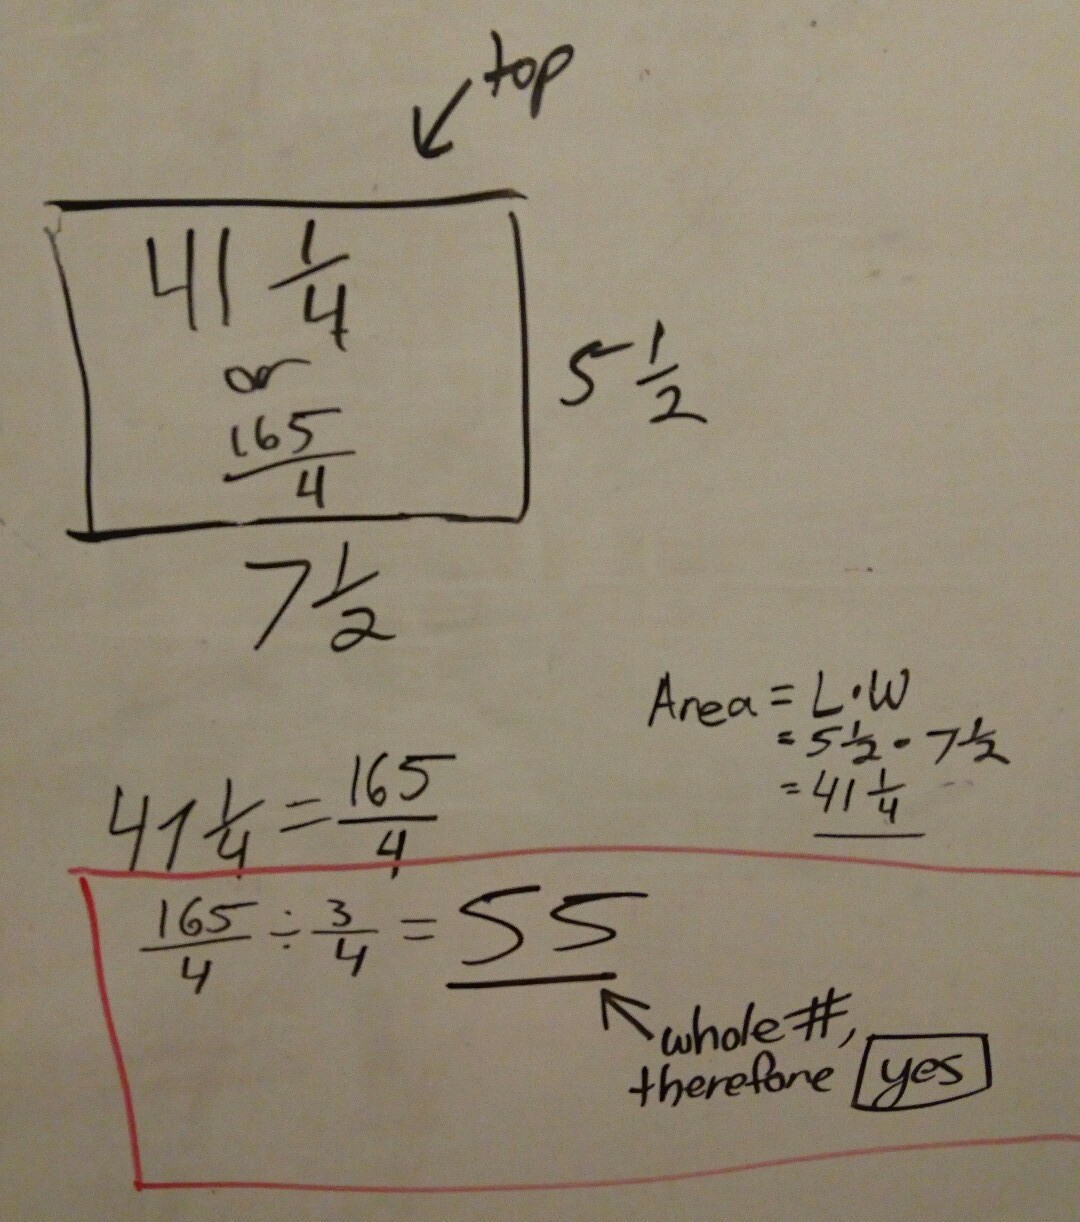 top
41 1/4
or
165/4
5 1/2
7 1/2
Area = L·W
= 5 1/2 · 7 1/2
= 41 1/4
41 1/4 = 165/4
165/4 ÷ 3/4 = 55
whole #,
therefore yes